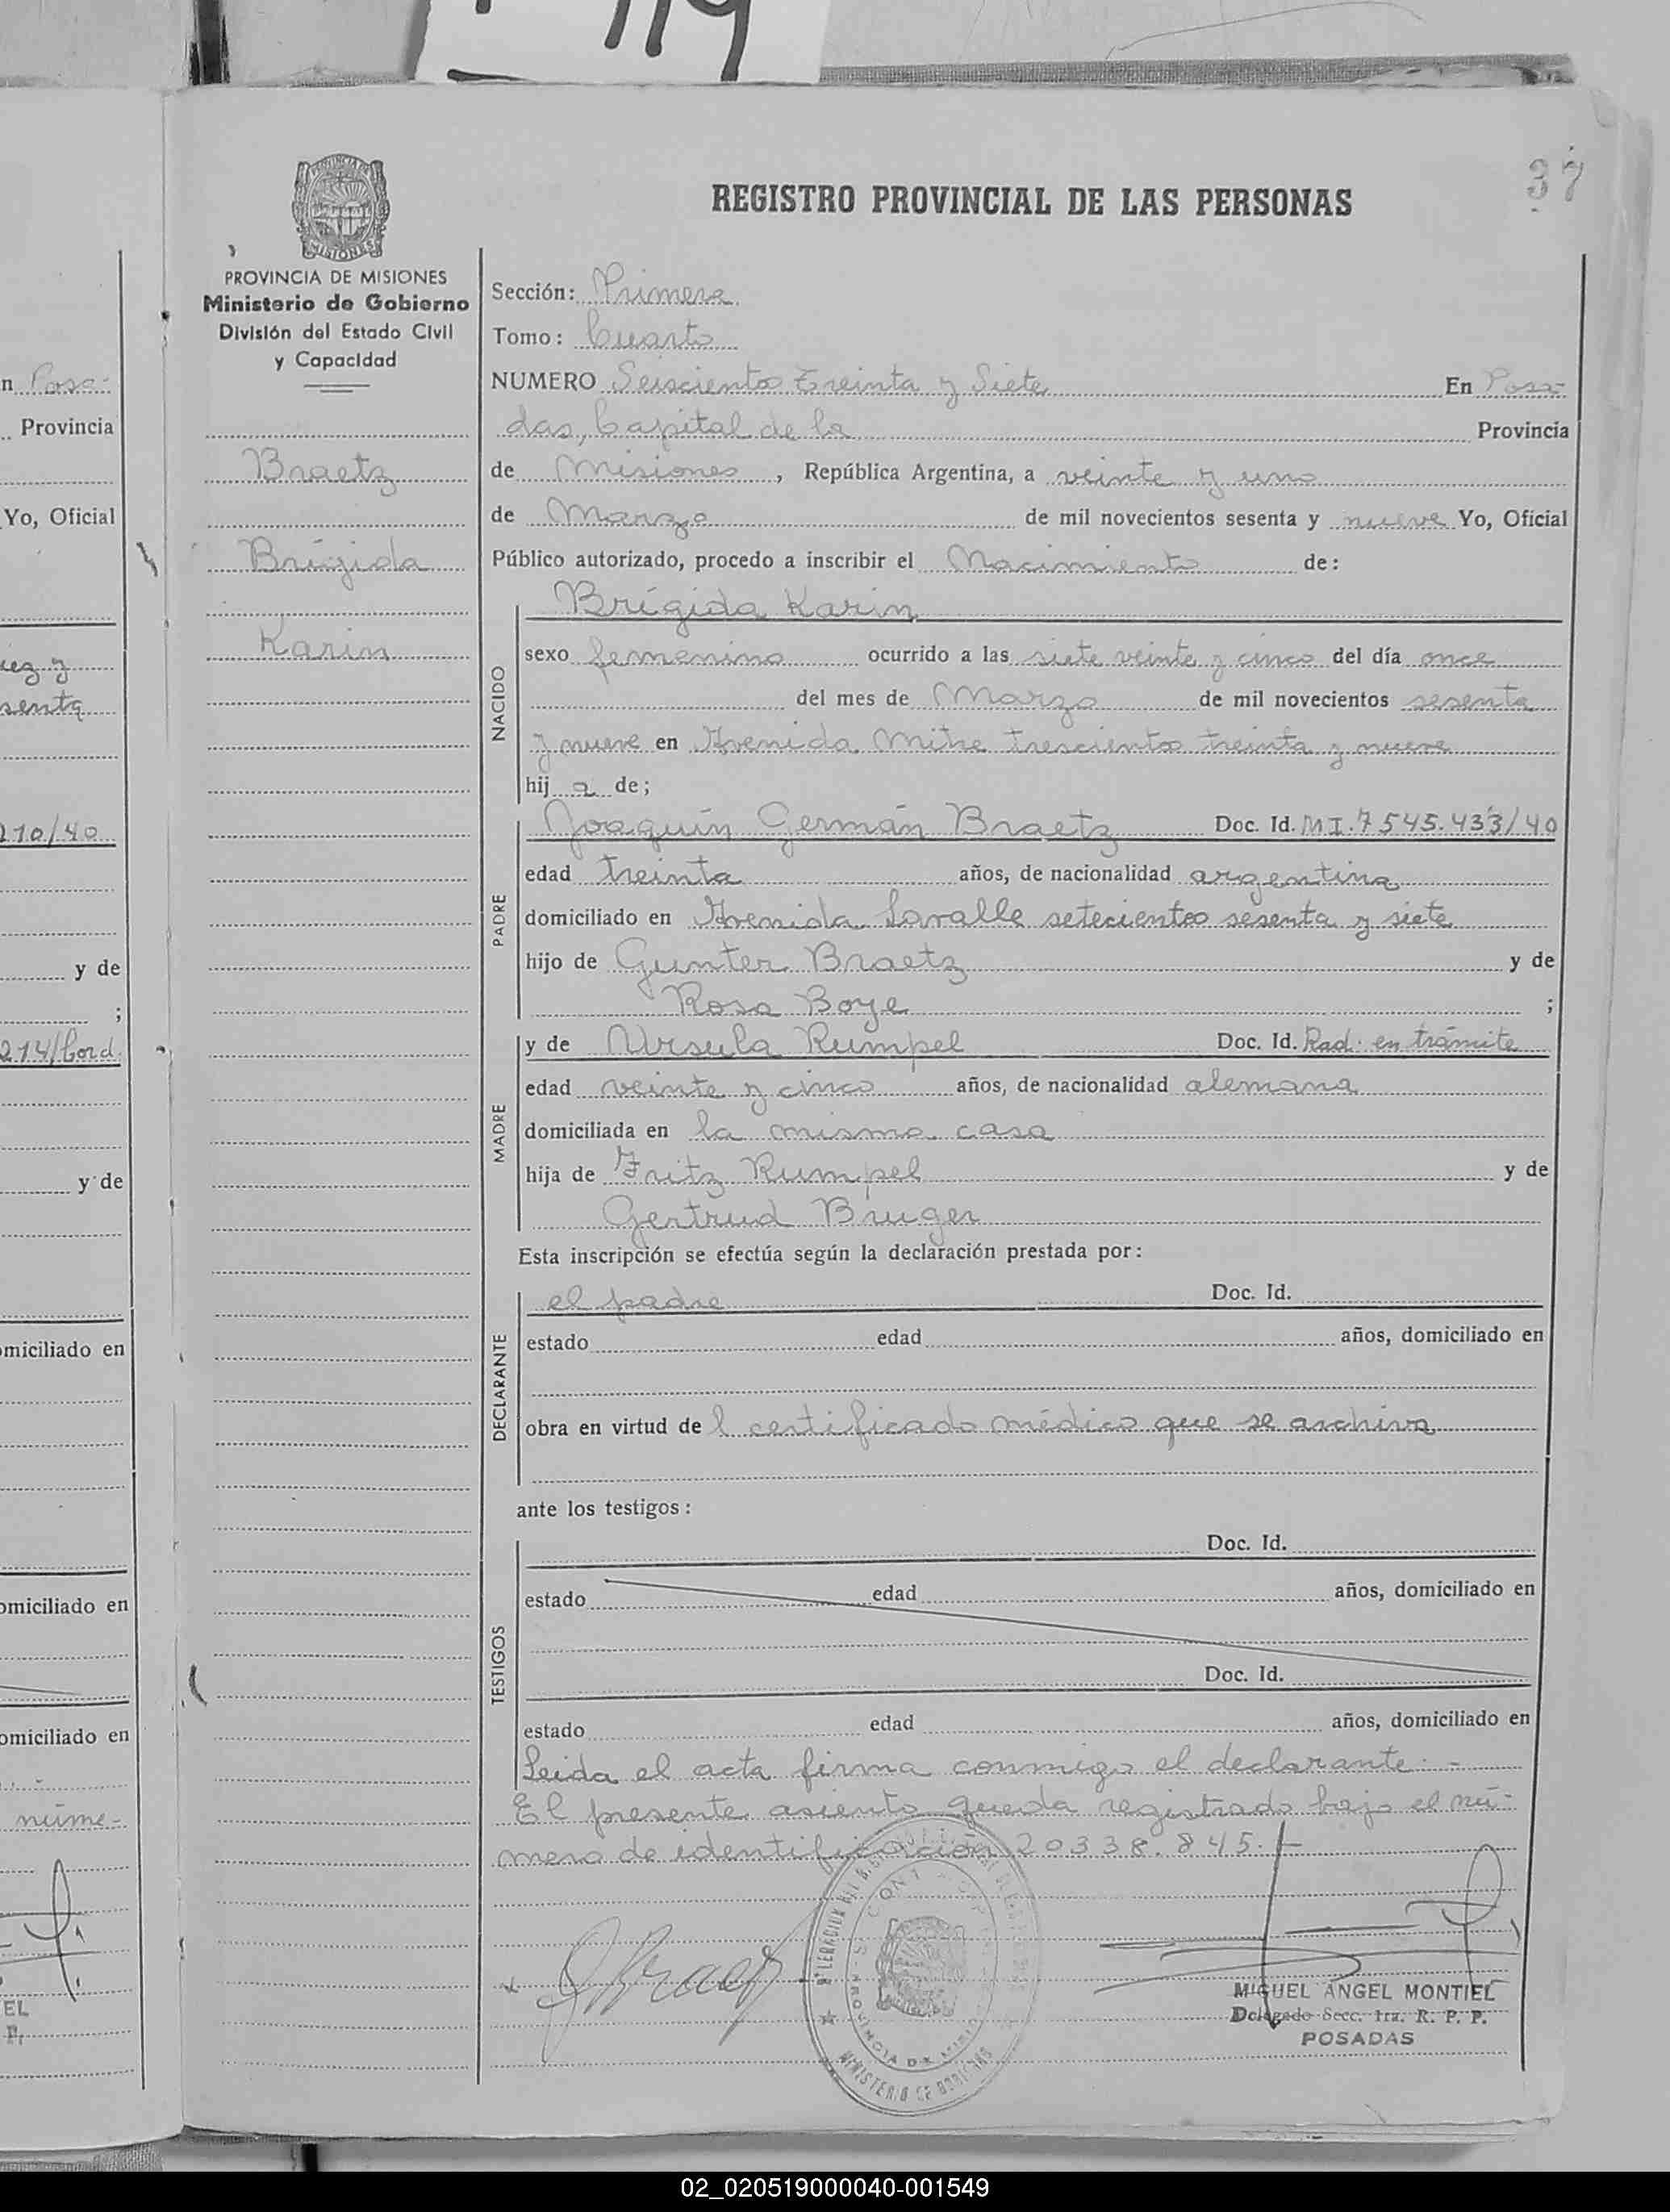 37
REGISTRO PROVINCIAL DE LAS PERSONAS
PROVINCIA DE MISIONES
Ministerio de Gobierno
División del Estado Civil
y Capacidad
Braetz
Brígida
Karin
Sección: Primera
Tomo: Cuarto
NUMERO Seiscientos Treinta y Siete En Posa-
das, Capital de la Provincia
de Misiones, República Argentina, a veinte y uno
de Marzo de mil novecientos sesenta y nueve Yo, Oficial
Público autorizado, procedo a inscribir el Nacimiento de:
NACIDO
Brígida Karin
sexo femenino ocurrido a las siete veinte y cinco del día once
del mes de Marzo de mil novecientos sesenta
y nueve en Avenida Mitre trescientos treinta y nueve
hij a de;
PADRE
Joaquín Germán Braetz Doc. Id. M I. 7545.433/40
edad treinta años, de nacionalidad argentina
domiciliado en Avenida Lavalle setecientos sesenta y siete
hijo de Gunter Braetz y de
Rosa Boye ;
MADRE
y de Ursula Rumpel Doc. Id. Rad. en trámite
edad veinte y cinco años, de nacionalidad alemana
domiciliada en la misma casa
hija de Fritz Rumpel y de
Gertrud Bruger
Esta inscripción se efectúa según la declaración prestada por:
DECLARANTE
el padre Doc. Id.
estado edad años, domiciliado en
obra en virtud de l certificado médico que se archiva
ante los testigos:
TESTIGOS
Doc. Id.
estado edad años, domiciliado en
Doc. Id.
estado edad años, domiciliado en
Leida el acta firma conmigo el declarante.-
El presente asiento queda registrado bajo el nú-
mero de identificación 20338.845.-
MIGUEL ANGEL MONTIEL
Delegado Secc. 1ra. R. P. P.
POSADAS
n Posa-
Provincia
Yo, Oficial
senta
210/40
y de
;
214/Cord.
y de
omiciliado en
omiciliado en
omiciliado en
núme-
EL
P.
02_020519000040-001549